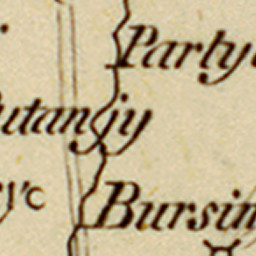 Party
utanjy
y'c
Bursin